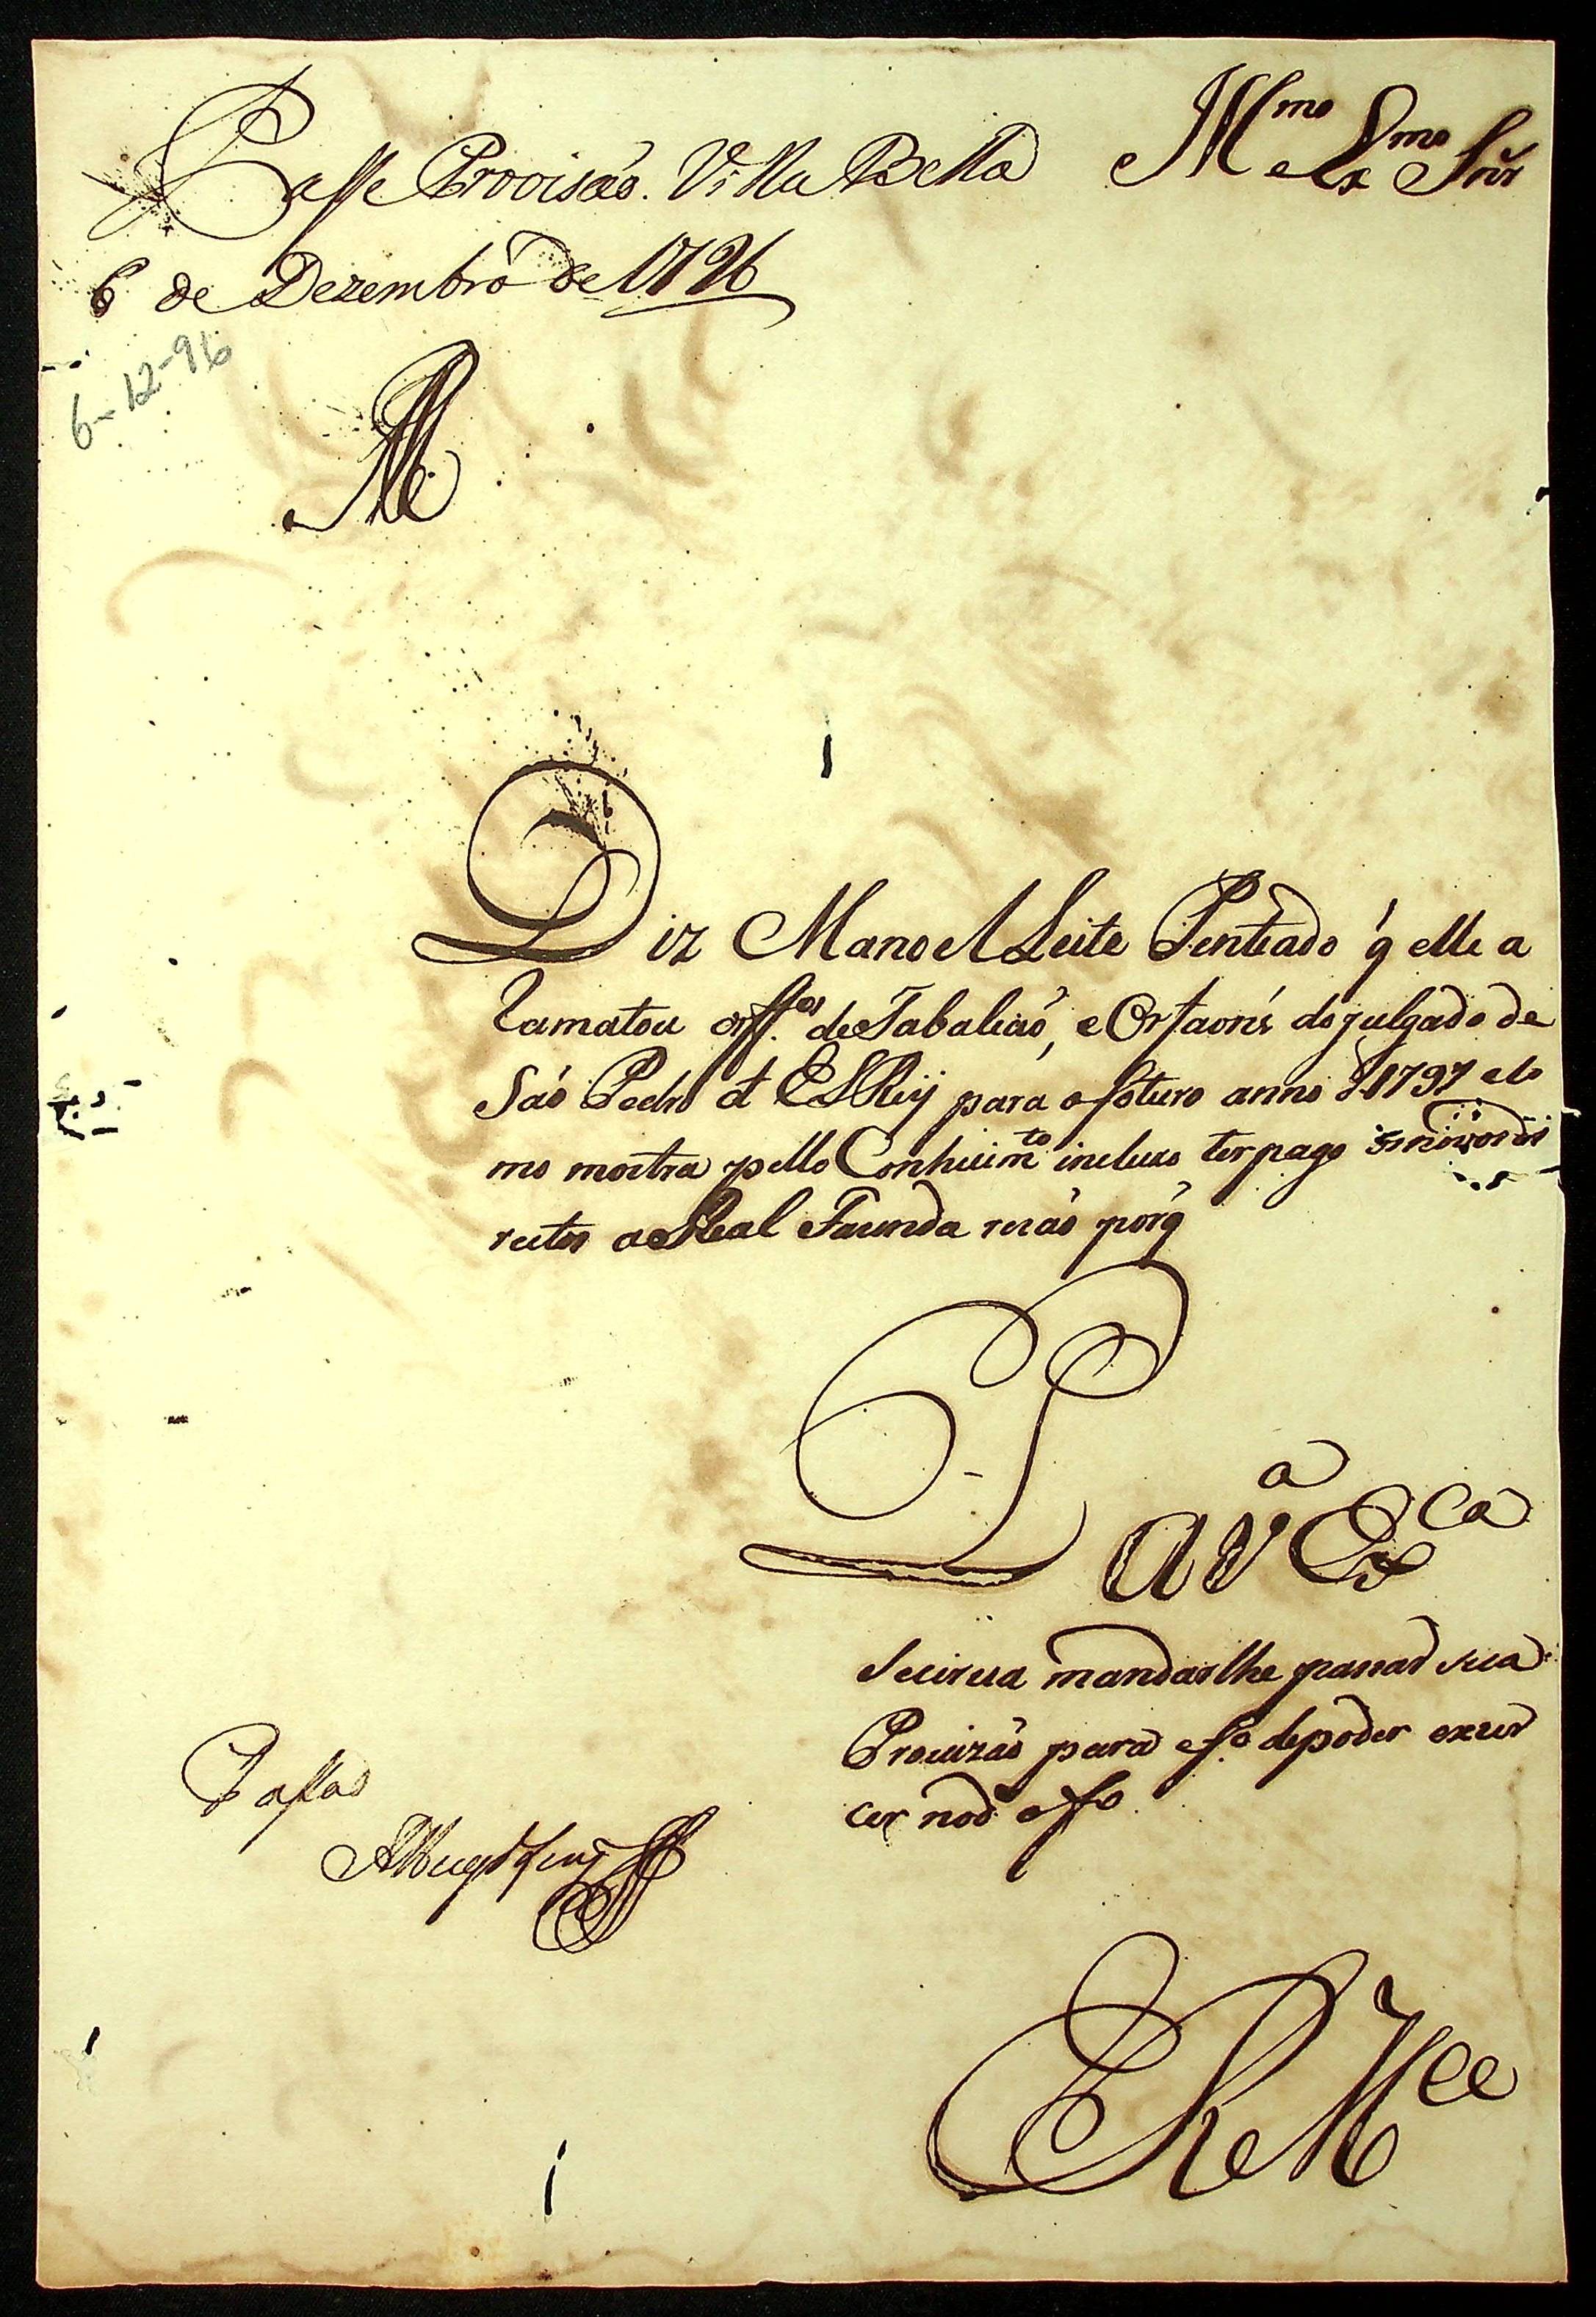 Passe Provisão. Villa Bella
6 de Dezembro de 1796
6-12-96
Illmo e Exmo Snr
Diz Manoel Leite Penteado q̃ elle a
Ramatou os off.os de Tabaliaó, e Orfaons do julgado de
Saó Pedro d' El Rey para o foturo anno d 1797 eco
mo mostra pello Conhecim.to incluzo ter pago os novos di
reitos a Real Fazenda rezaó porq̃
P a V.a Ex.ca
Seja servida mandarlhe passar sua
Provizaó para ef.o de poder exzer
cer no d.o off.o
Passar
E R M.ce